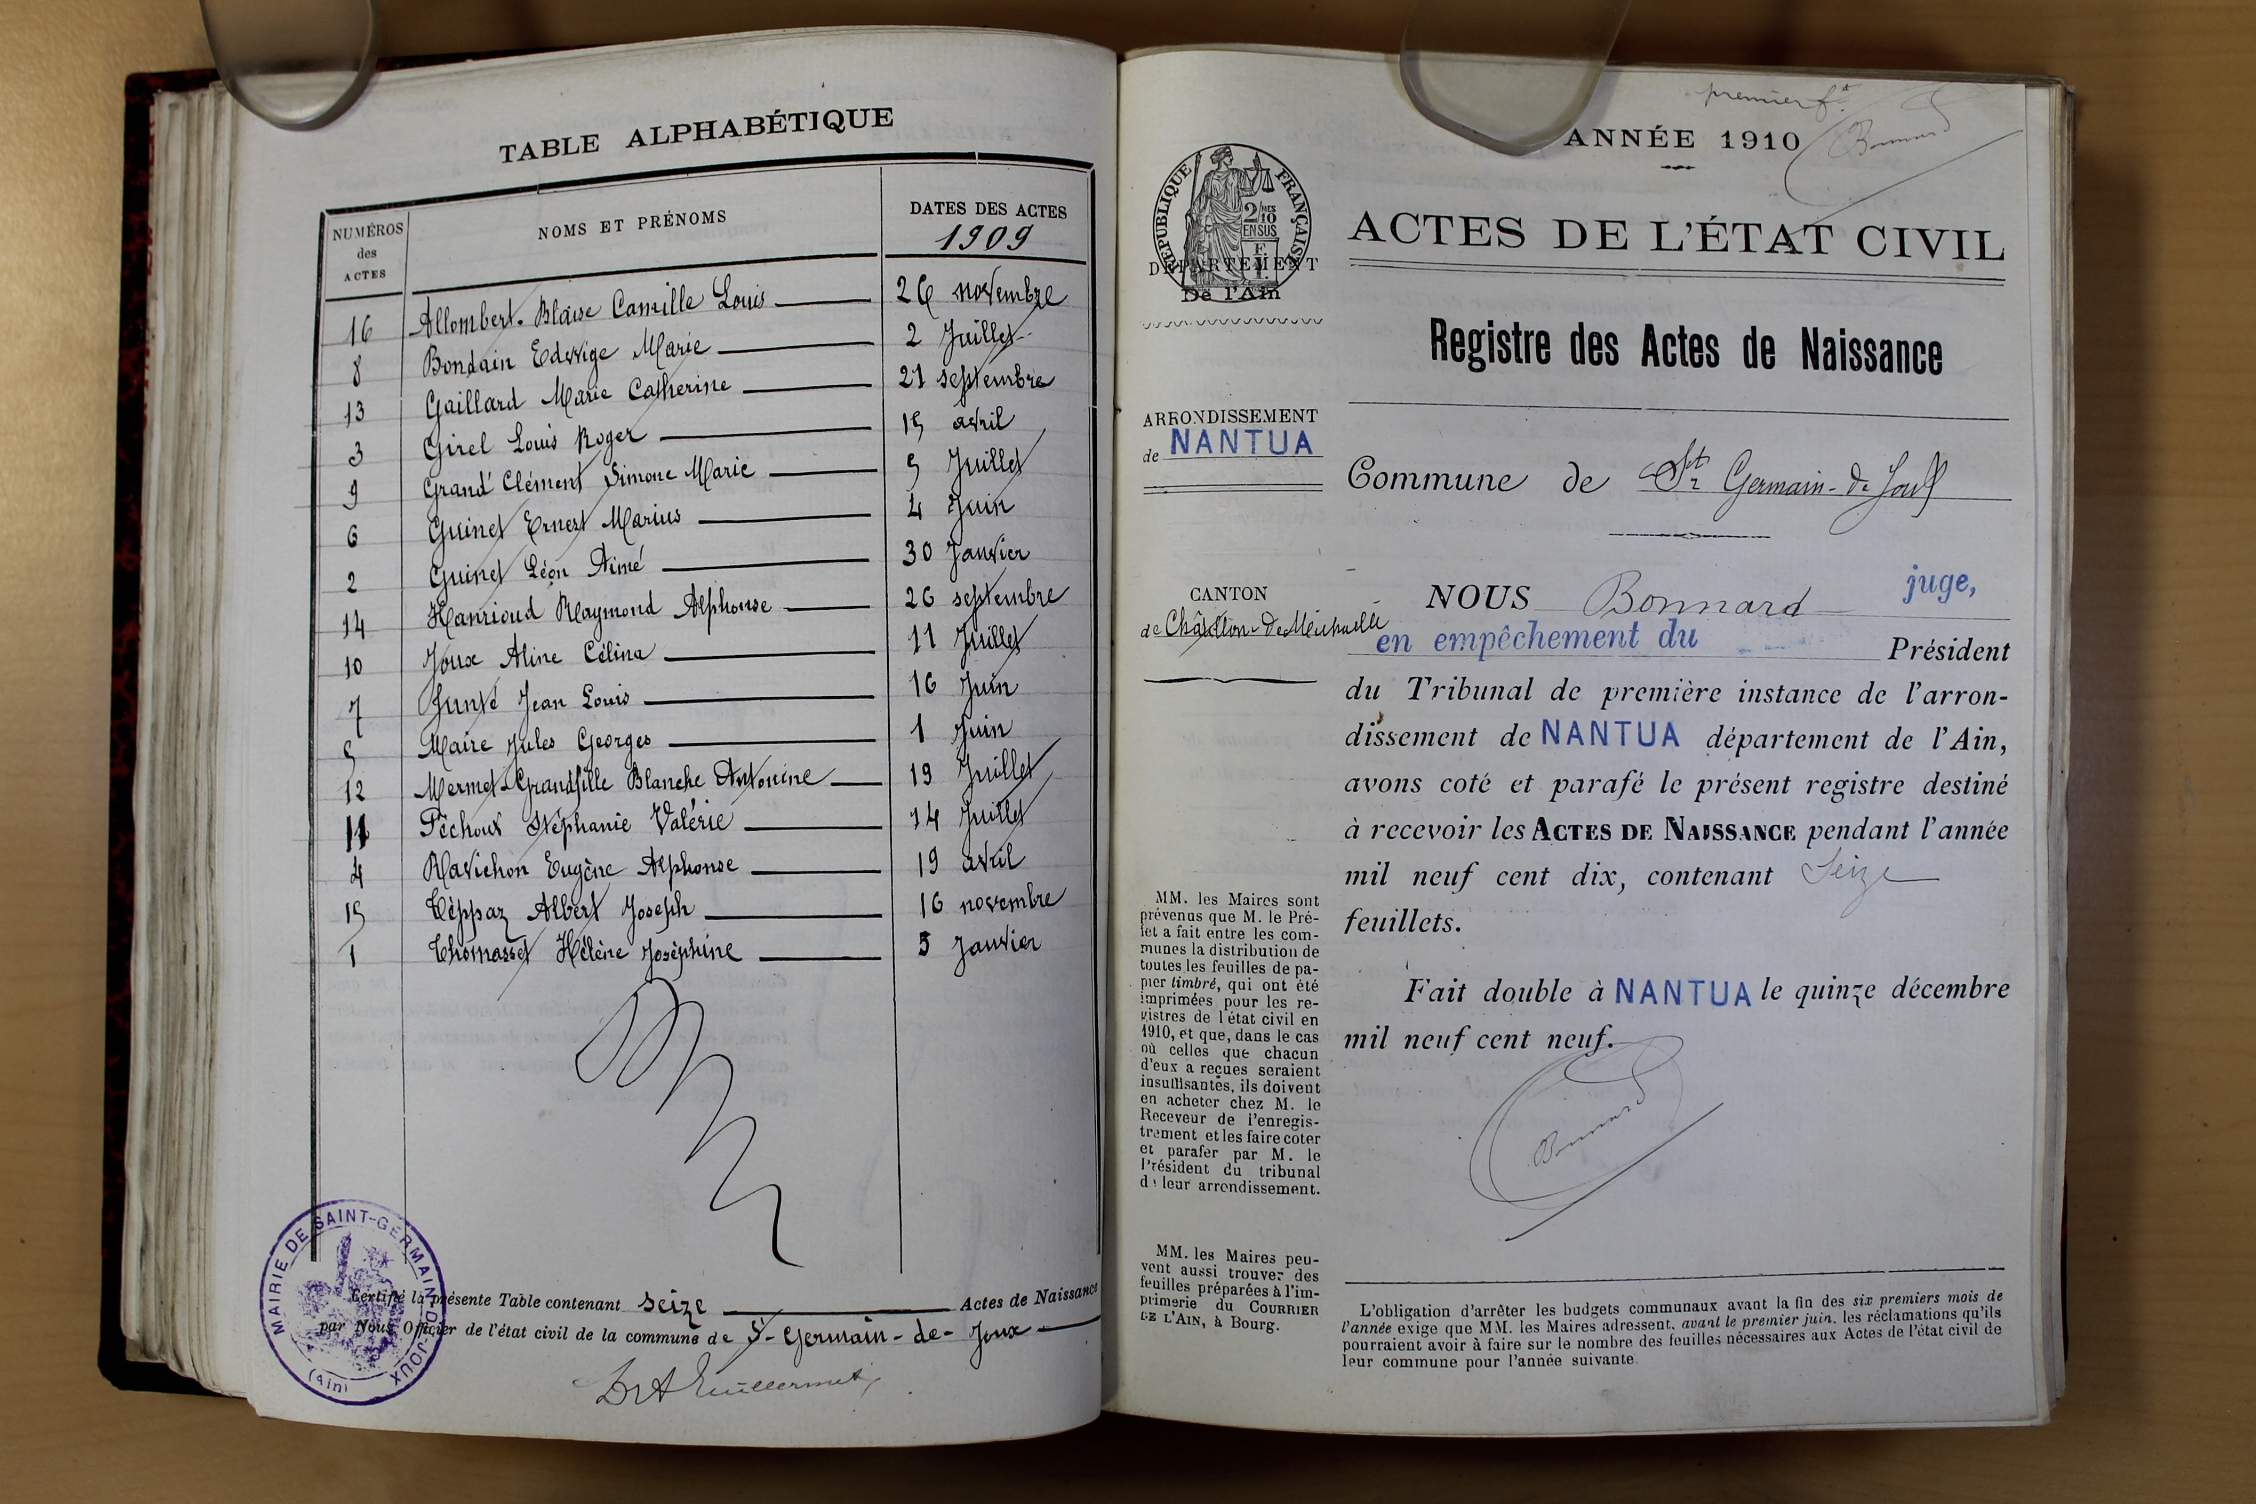 TABLE ALPHABÉTIQUE
NUMÉROS
des
ACTES
NOMS ET PRÉNOMS
DATES DES ACTES
1909
16 Allombert-Blaise Camille Louis 26 novembre
8 Bondain Edwige Marie 2 Juillet
13 Gaillard Marie Catherine 21 septembre
3 Girel Louis Roger 15 avril
9 Grand Clément Simone Marie 5 Juillet
6 Guinet Ernest Marius 4 Juin
2 Guinet Léon Aimé 30 Janvier
14 Hanrioud Raymond Alphonse 26 septembre
10 Joux Aline Célina 11 Juillet
7 Junté Jean Louis 16 Juin
5 Maire Jules Georges 1 Juin
12 Mermet-Grandfille Blanche Antonine 19 Juillet
11 Péchoux Stéphanie Valérie 14 Juillet
4 Ravichon Eugène Alphonse 19 avril
15 Téppaz Albert Joseph 16 novembre
1 Thomasset Hélène Joséphine 5 Janvier
Certifié la présente Table contenant seize Actes de Naissance
par Nous Officier de l'état civil de la commune de St-Germain-de-Joux
MAIRIE DE SAINT-GERMAIN-DE-JOUX
(Ain)
premier ft
Bonnard
ANNÉE 1910
RÉPUBLIQUE FRANÇAISE
2/10
EN SUS
DÉPARTEMENT
De l'Ain
ACTES DE L'ÉTAT CIVIL
Registre des Actes de Naissance
ARRONDISSEMENT
de NANTUA
Commune de St Germain-de-Joux
CANTON
de Châtillon-de-Michaille
NOUS Bonnard juge,
en empêchement du Président
du Tribunal de première instance de l'arron-
dissement de NANTUA département de l'Ain,
avons coté et parafé le présent registre destiné
à recevoir les ACTES DE NAISSANCE pendant l'année
mil neuf cent dix, contenant Seize
feuillets.
Fait double à NANTUA le quinze décembre
mil neuf cent neuf.
Bonnard
MM. les Maires sont
prévenus que M. le Pré-
fet a fait entre les com-
munes la distribution de
toutes les feuilles de pa-
pier timbré, qui ont été
imprimées pour les re-
gistres de l'état civil en
1910, et que, dans le cas
où celles que chacun
d'eux a reçues seraient
insuffisantes, ils doivent
en acheter chez M. le
Receveur de l'enregis-
trement et les faire coter
et parafer par M. le
Président du tribunal
de leur arrondissement.
MM. les Maires peu-
vent aussi trouver des
feuilles préparées à l'im-
primerie du COURRIER
DE L'AIN, à Bourg.
L'obligation d'arrêter les budgets communaux avant la fin des six premiers mois de
l'année exige que MM. les Maires adressent, avant le premier juin, les réclamations qu'ils
pourraient avoir à faire sur le nombre des feuilles nécessaires aux Actes de l'état civil de
leur commune pour l'année suivante.